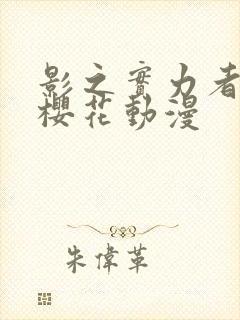 影之實力者
櫻花動漫
朱偉革